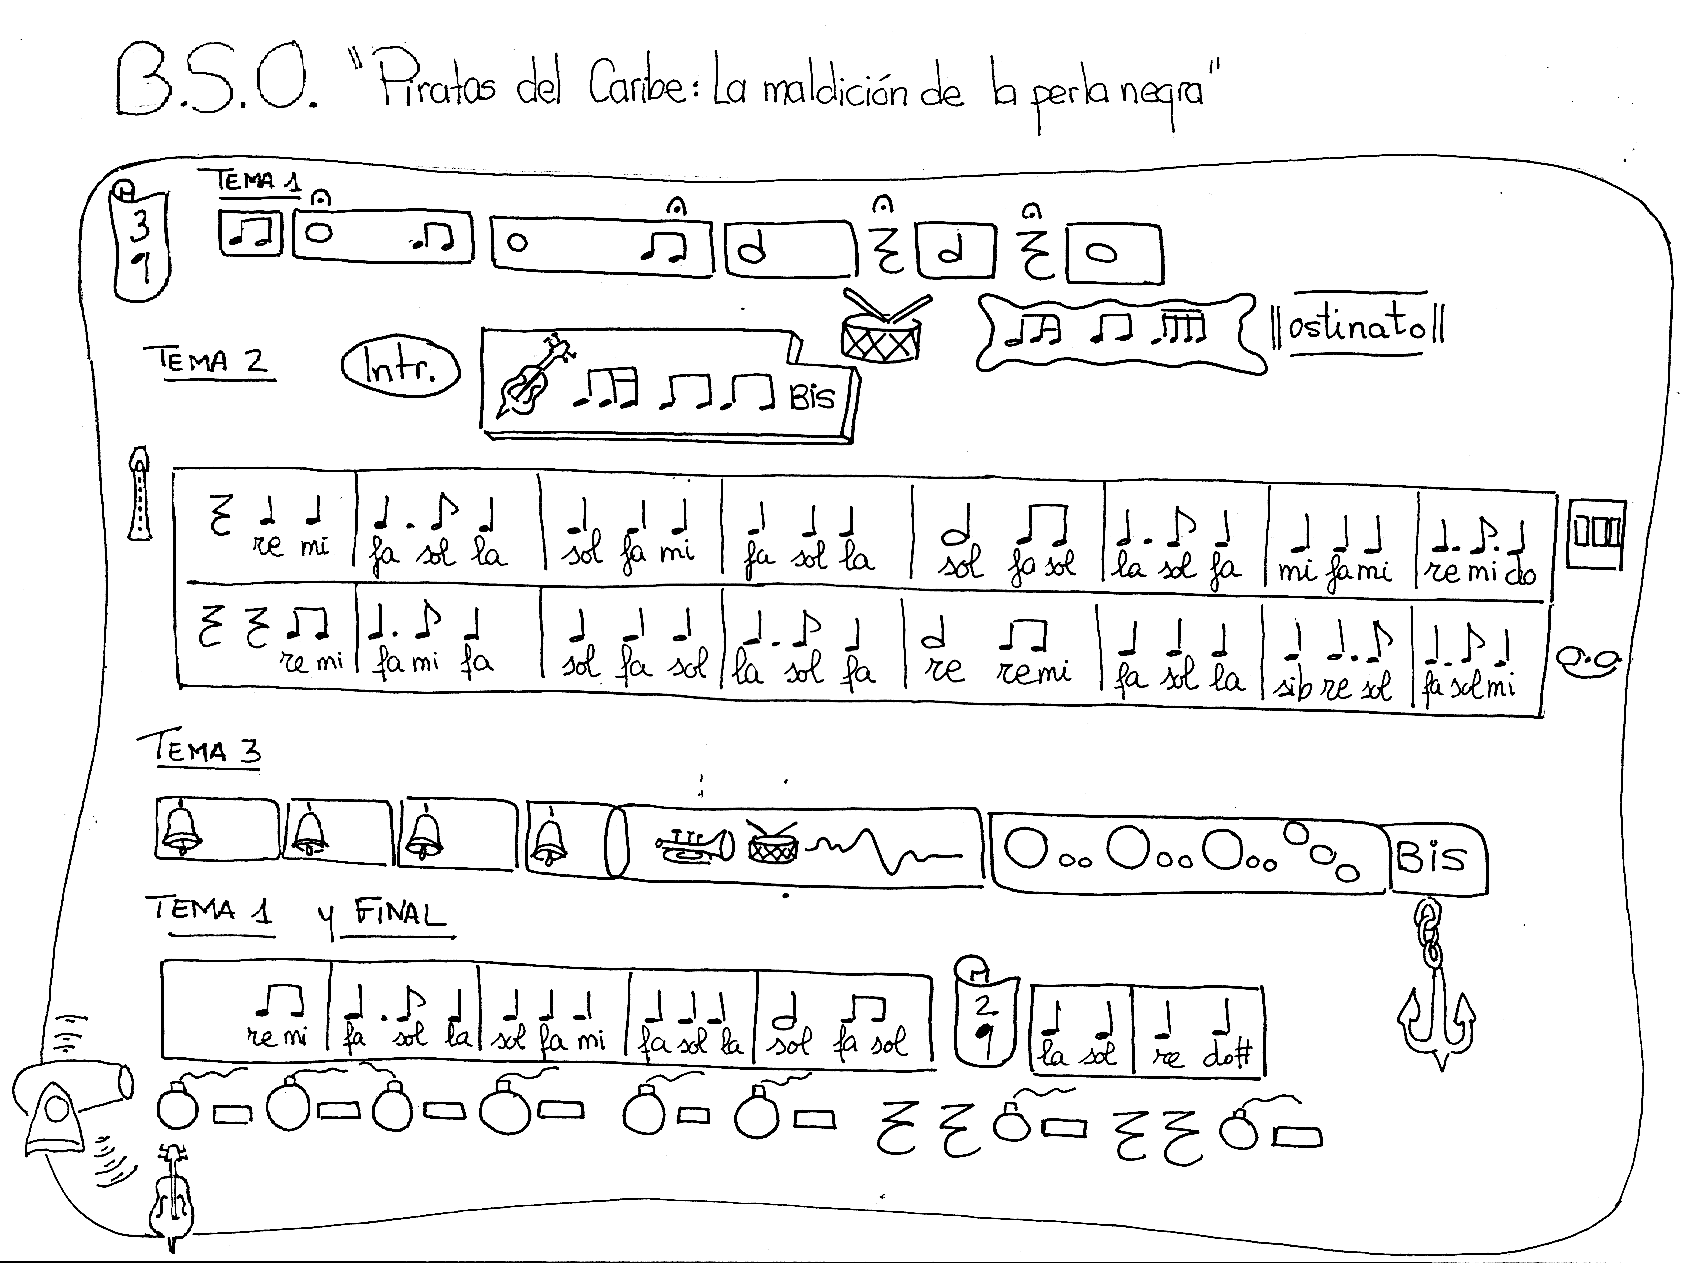 B.S.O. "Piratas del Caribe: La maldición de la perla negra"
TEMA 1
3
TEMA 2 Intr. Bis ||ostinato||
re mi fa sol la sol fa mi fa sol la sol fa sol la sol fa mi fa mi re mi do
re mi fa mi fa sol fa sol la sol fa re re mi fa sol la sib re sol fa sol mi
TEMA 3
Bis
TEMA 1 y FINAL
re mi fa sol la sol fa mi fa sol la sol fa sol 2 la sol re do#